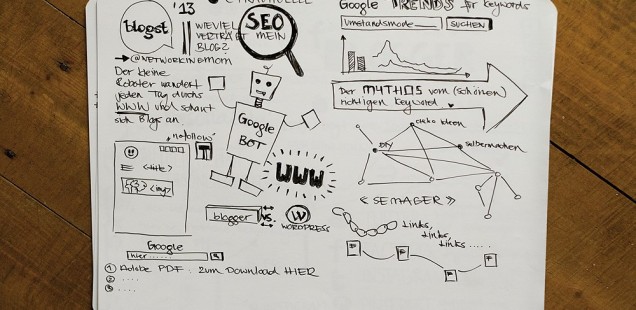 blogst
'13
WIEVIEL
SEO
VERTRÄGT MEIN
BLOG?
@NETWORKINGMOM
Der kleine
Roboter wandert
jeden Tag durchs
WWW und schaut
sich Blogs an.
nofollow
T
Google
BOT
WWW
blogger
VS.
W
WORDPRESS
Google
hier.....
1 Adobe PDF : zum Download HIER
2 ....
3 ....
Google TRENDS für keywords
Umstandsmode
SUCHEN
Der MYTHOS vom (schönen)
richtigen Keyword
deko ideen
DIY
selbermachen
« SEMAGER »
Links,
Links,
Links.....